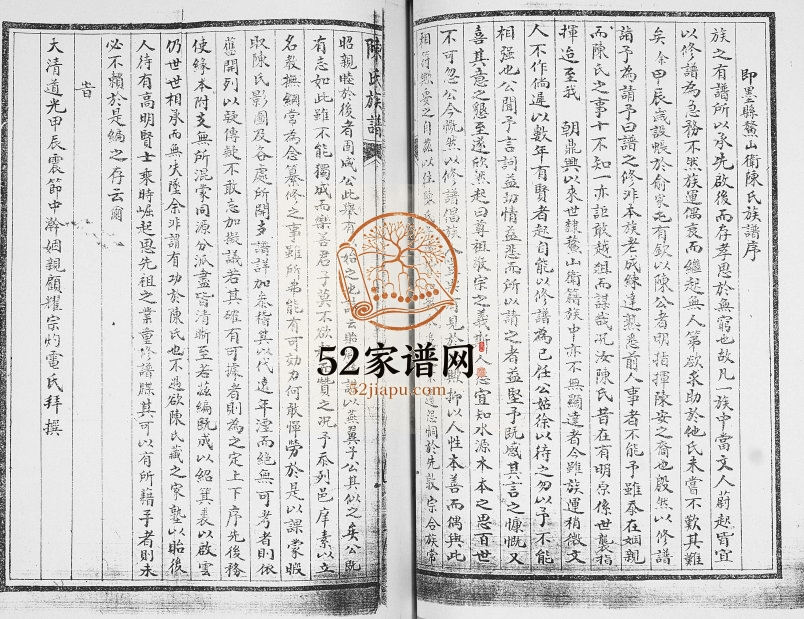 即墨縣鰲山衛陳氏族譜序
族之有譜所以承先啟後而存孝思於無窮也故凡一族中當文人蔚起皆宜
以修譜為急務不然族運偶衰而繼起無人第欲求助於他氏未嘗不歎其難
矣余甲辰歲設帳於俞家屯有欽以陳公者明指揮陳安之裔也殷然以修譜
請予為請予曰譜之修非本族老成鍊達熟悉前人事者不能予雖忝在姻親
而陳氏之事十不知一亦詎敢越俎而謀哉况汝陳氏昔在有明原係世襲指
揮迨至我 朝鼎興以來世隸鰲山衛籍族中亦不無顯達者今雖族運稍微文
人不作倘遲以數年有賢者起自能以修譜為己任公姑徐以待之勿以予不能
相強也公聞予言詞益切情益悉而所以請之者益堅予既感其言之慷慨又
喜其意之懇至遂欣然起曰尊祖敬宗之義斯人 宜知水源木本之思百世
不可忽公今慨然以修譜倡族 見於 歟抑以人性本善而偶與此
相符歟要之自茲以往陳氏 怨恫於先敦宗合族常
陳氏族譜
昭親睦於後者固咸公此舉有 始之也 云貽 謀以燕翼子公其似之矣公既
有志如此雖不能獨成而樂善君子莫不欲 而贊之况予忝列邑庠素以立
名教振綱常為念纂修之事雖所弗能有可効力何敢憚勞於是以課蒙暇
取陳氏影圖及各處所開支譜詳加叅稽其以代遠年湮而絕無可考者則依
舊開列以疑傳疑不敢忘加擬議若其確有可據者則為之定上下序先後務
使緣本附支無所混蒙同源分派盡皆清晰至若茲編既成以紹箕裘以啟雲
仍世世相承而無失墜余非謂有功於陳氏也不過欲陳氏藏之家塾以昭後
人待有高明賢士乘時崛起思先祖之業重修譜牒其可以有所藉手者則未
必不賴於是編之存云爾
旹
大清道光甲辰震節中澣姻親顧耀宗灼電氏拜撰
52家谱网
52jiapu.com